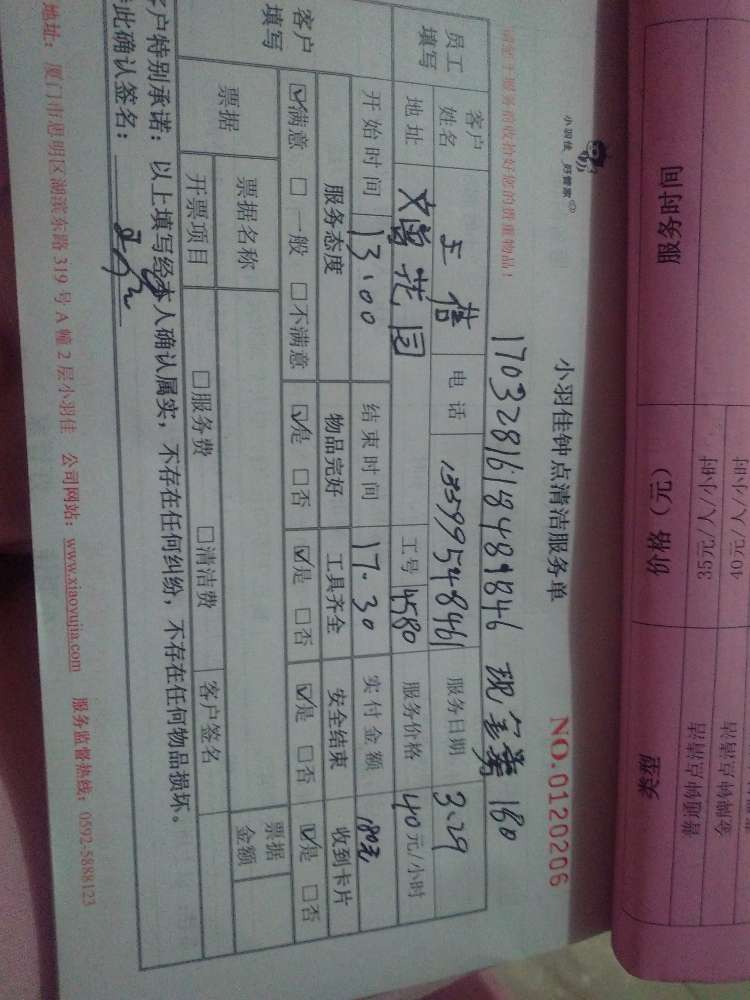 服务时间 价格（元） 类型
35元/人/小时 普通钟点清洁
40元/人/小时 金牌钟点清洁
小羽佳 好管家
小羽佳钟点清洁服务单 NO.0120206
请您于服务前收拾好您的贵重物品！
180
员工填写 客户姓名 电话 服务日期 3.29
地址 花园 工号 4580 服务价格 40元/小时
开始时间 13:00 结束时间 17.30 实付金额 180元
客户填写 服务态度 物品完好 工具齐全 安全结束 收到卡片
☑满意 □一般 □不满意 ☑是 □否 ☑是 □否 ☑是 □否 ☑是 □否
票据 票据名称 票据金额
开票项目 □服务费 □清洁费 客户签名
客户特别承诺：以上填写经本人确认属实，不存在任何纠纷，不存在任何物品损坏。
特此确认签名：
地址：厦门市思明区湖滨东路319号A幢2层小羽佳 公司网站：www.xiaoyujia.com 服务监督热线：0592-5888123